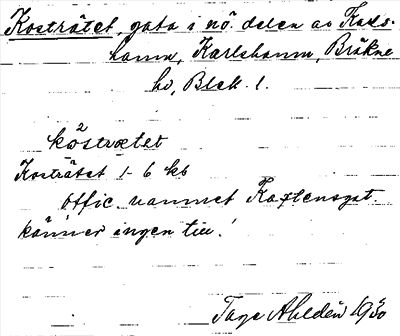 Kosträtet, gata i nö. delen av Karls-
hamn, Karlshamn, Bräkne
hd, Blek. 1.
2
köstrætet
Kosträtet 1-6 kb
Offic. namnet Kaptensgat.
känner ingen till!
Tage Ahldén 1930